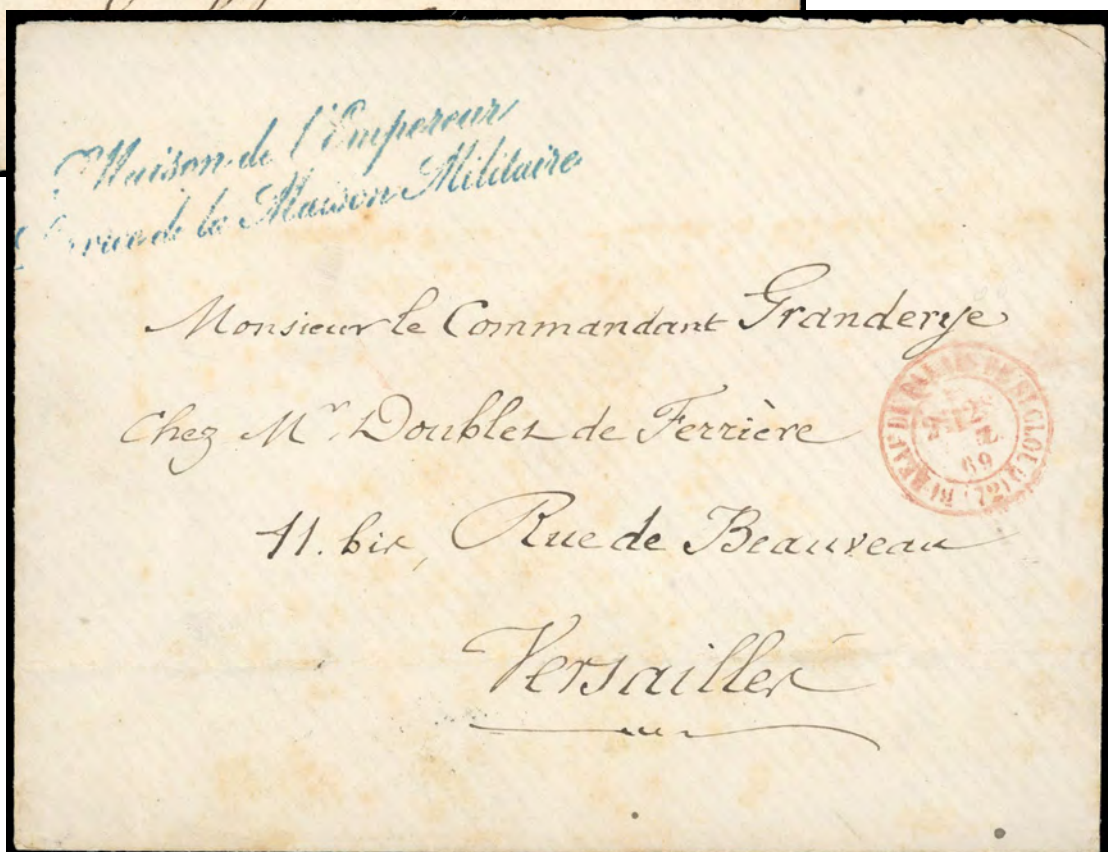 Maison de l'Empereur
Service de la Maison Militaire
Monsieur le Commandant Granderye
Chez Mr. Doublet de Ferrière
11. bis, Rue de Beauveau
Versailles
BUREAU DU PALAIS DE ST CLOUD (72)
2E
69